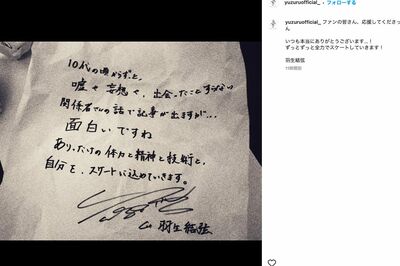 10代の頃からずっと、
嘘や妄想や、出会ったことすらない
関係者さんの話で記事が出ますが…
面白いですね
ありったけの体力と精神と技術と、
自分を、スケートに込めていきます。
羽生結弦
yuzuruofficial_
yuzuruofficial_ ファンの皆さん、応援してくださ
いつも本当にありがとうございます…！
ずっとずっと全力でスケートしていきます！
羽生結弦